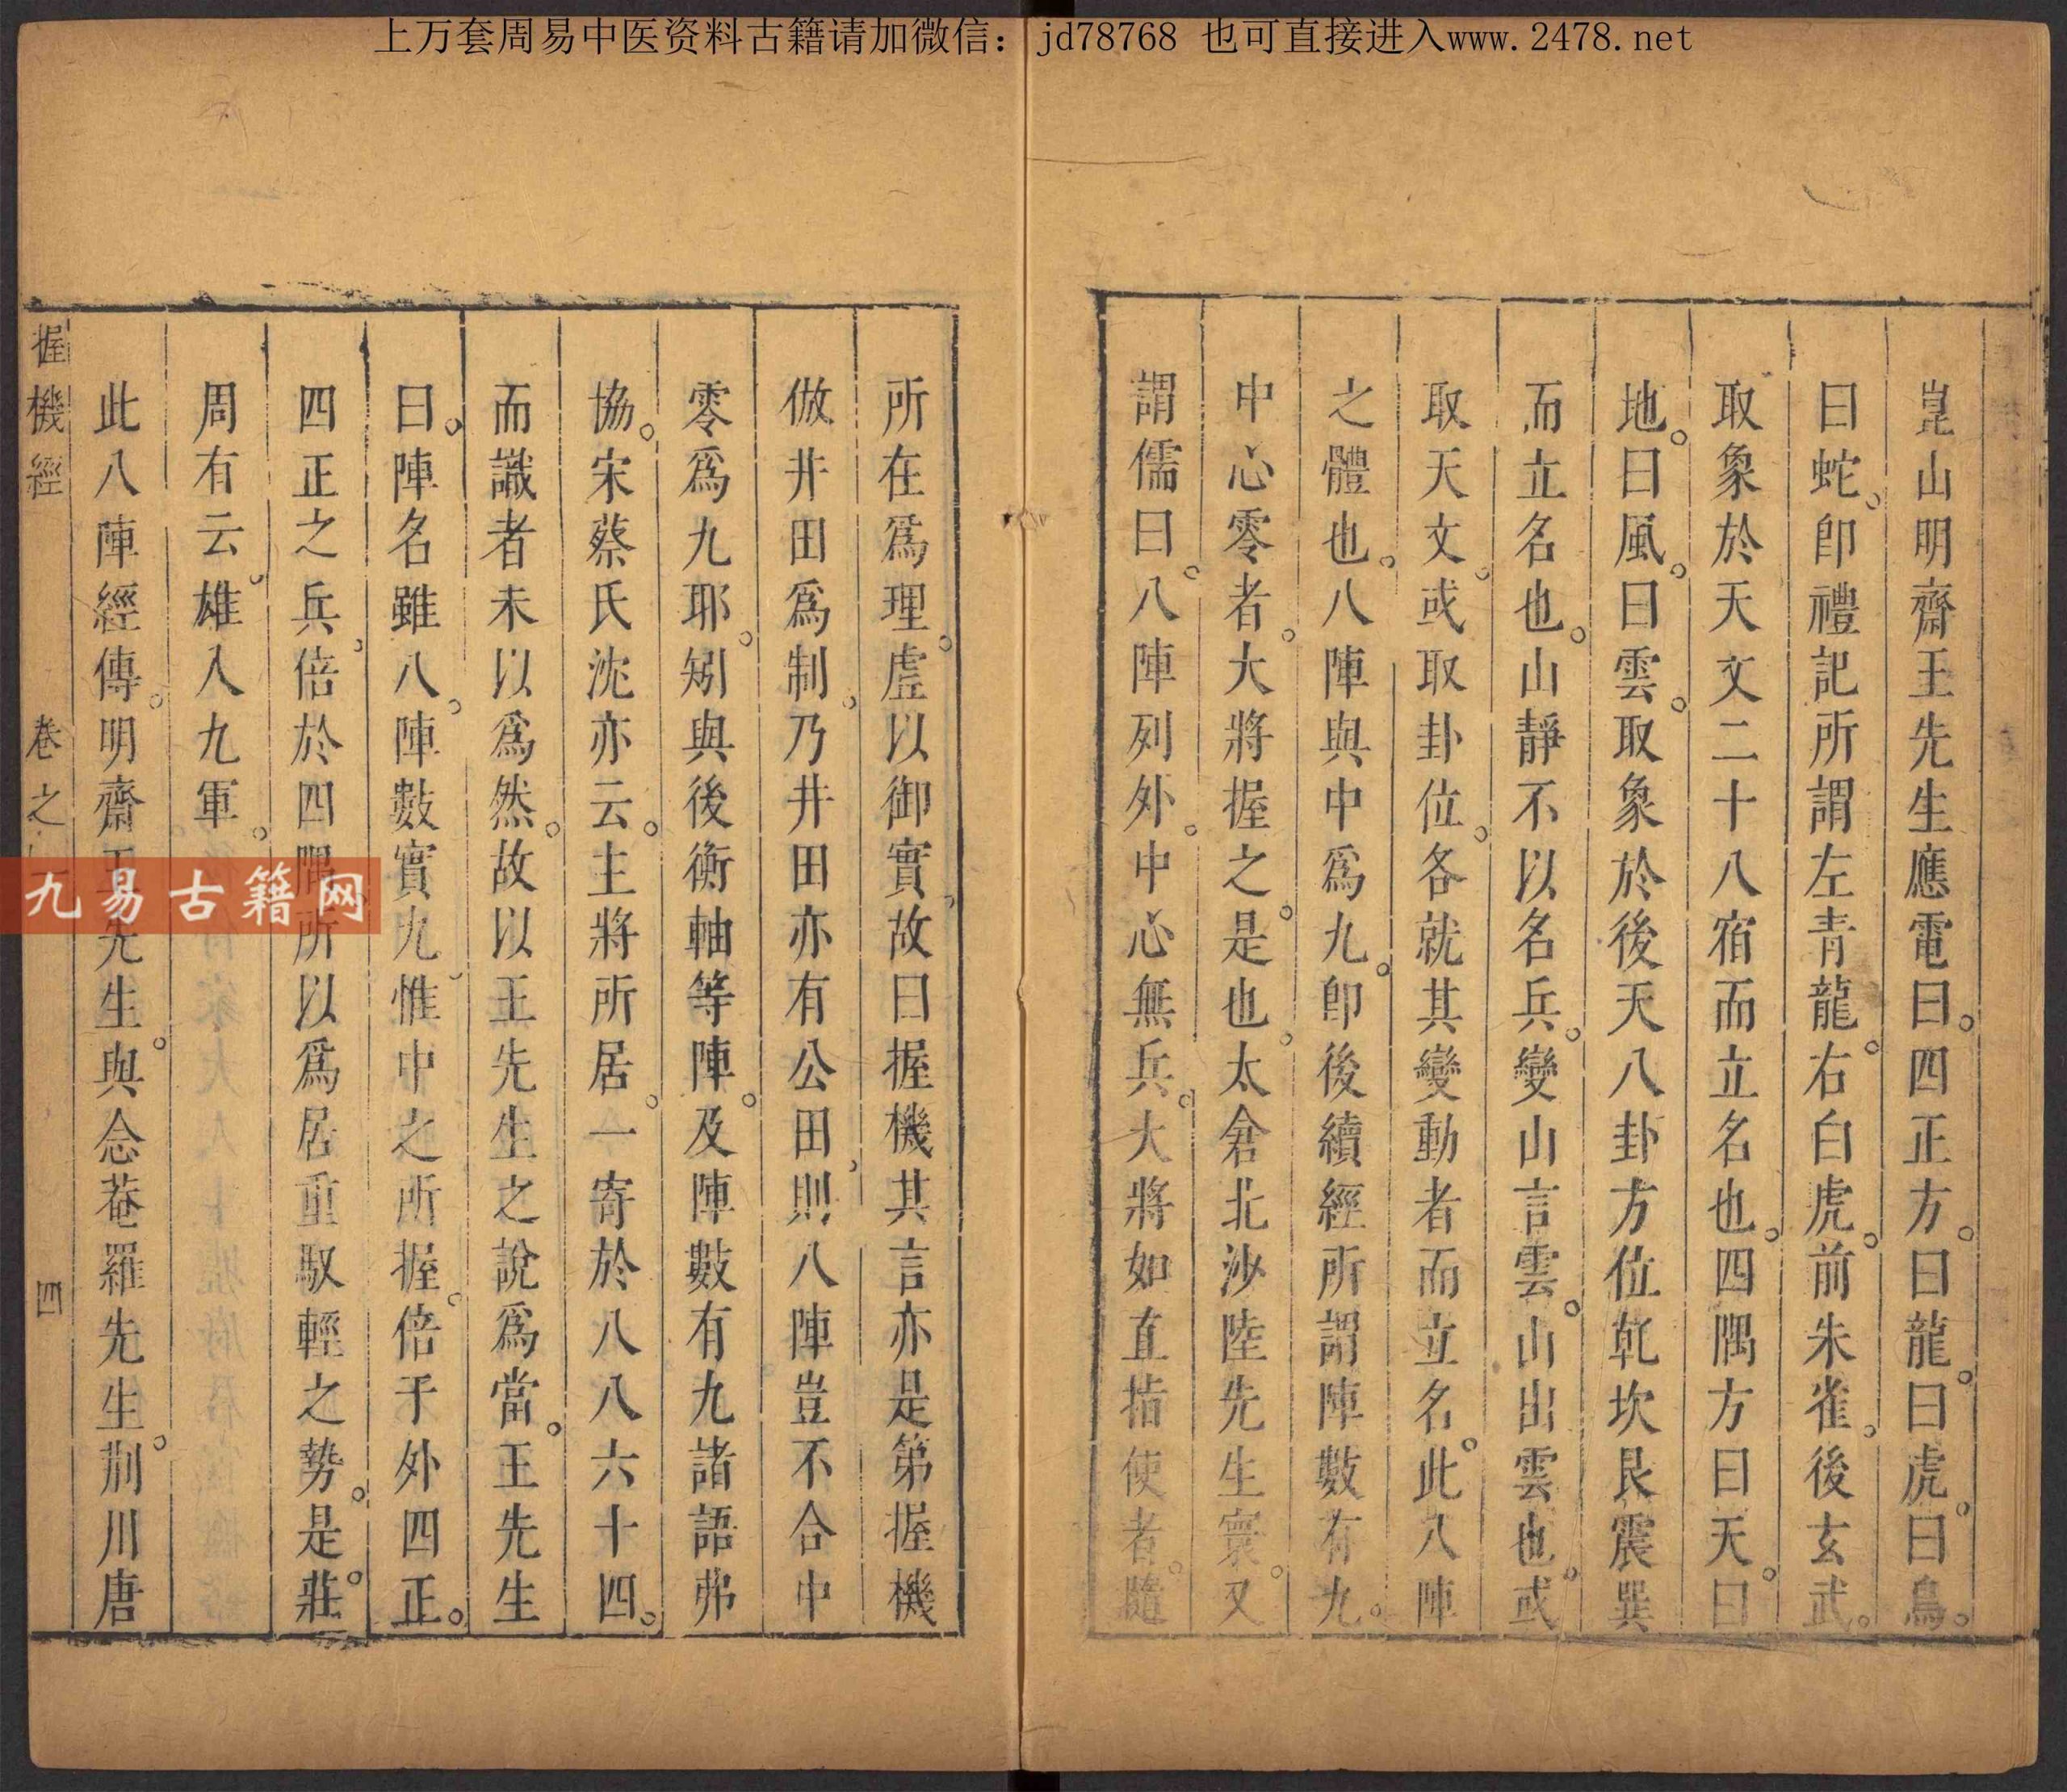 上万套周易中医资料古籍请加微信：jd78768 也可直接进入www.2478.net
崑山明齋王先生應電曰。四正方。曰龍。曰虎。曰鳥。
曰蛇。卽禮記所謂左青龍。右白虎。前朱雀。後玄武。
取象於天文二十八宿而立名也。四隅方曰天。曰
地。曰風。曰雲。取象於後天八卦方位乾坎艮震巽
而立名也。山靜不以名兵。變山言雲。山出雲也。或
取天文。或取卦位。各就其變動者而立名。此八陣
之體也。八陣與中爲九。卽後續經所謂陣數有九。
中心零者。大將握之。是也。太倉北沙陸先生寰。又
謂儒曰。八陣列外。中心無兵。大將如直指使者。隨
所在爲理。虛以御實。故曰握機其言亦是第握機
倣井田爲制。乃井田亦有公田。則八陣豈不合中
零爲九耶。矧與後衡軸等陣。及陣數有九諸語弗
協。宋蔡氏沈亦云。主將所居。一寄於八八六十四。
而識者未以爲然。故以王先生之說爲當。王先生
曰。陣名雖八。陣數實九。惟中之所握。倍于外四正。
四正之兵。倍於四隅。所以爲居重馭輕之勢。是。莊
周有云。雄入九軍。
此八陣經傳。明齋王先生。與念菴羅先生。荆川唐
握機經 卷之 四
九易古籍网